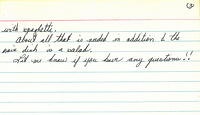 with spaghetti.
About all that is needed in addition to the
main dish is a salad.
Let me know if you have any questions!!